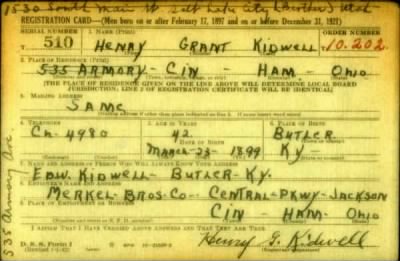 1530 South Main St Salt Lake City (brother) Utah
REGISTRATION CARD—(Men born on or after February 17, 1897 and on or before December 31, 1921)
SERIAL NUMBER 1. NAME (Print) ORDER NUMBER
T 510 HENRY GRANT KIDWELL 10,202
2. PLACE OF RESIDENCE (Print)
535 ARMORY - CIN - HAM - OHIO
[THE PLACE OF RESIDENCE GIVEN ON THE LINE ABOVE WILL DETERMINE LOCAL BOARD
JURISDICTION; LINE 2 OF REGISTRATION CERTIFICATE WILL BE IDENTICAL]
3. MAILING ADDRESS
SAME
[Mailing address if other than place indicated on line 2. If same insert word same]
4. TELEPHONE 5. AGE IN YEARS 6. PLACE OF BIRTH
CH-4980 42 BUTLER
DATE OF BIRTH
MARCH-23-1899 KY-
7. NAME AND ADDRESS OF PERSON WHO WILL ALWAYS KNOW YOUR ADDRESS
EDW. KIDWELL - BUTLER-KY.
8. EMPLOYER'S NAME AND ADDRESS
MERKEL BROS-CO- CENTRAL-PKWY-JACKSON
9. PLACE OF EMPLOYMENT OR BUSINESS
CIN - HAM- OHIO
I AFFIRM THAT I HAVE VERIFIED ABOVE ANSWERS AND THAT THEY ARE TRUE.
D. S. S. Form 1
Henry G. Kidwell
535 Armory Ave.